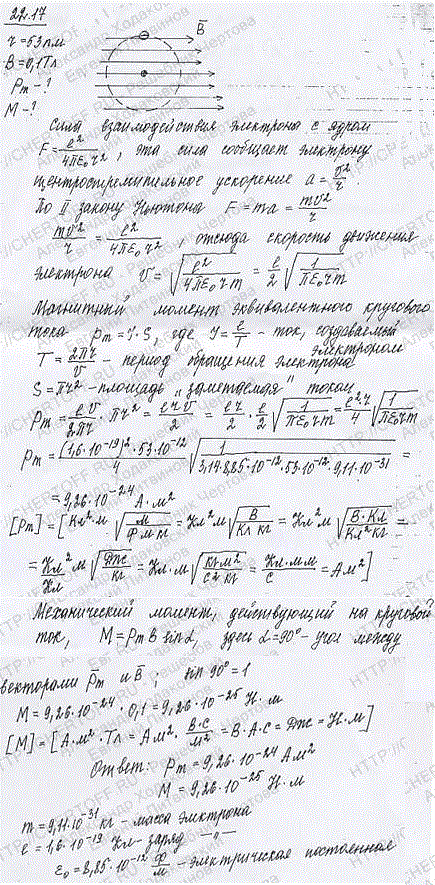 22.17
r = 53 пм
B = 0,1 Тл
Pm - ?
M - ?
B̅
Сила взаимодействия электрона с ядром
F = e²/(4πε₀r²), эта сила сообщает электрону
центростремительное ускорение a = v²/r.
По II закону Ньютона F = ma = mv²/r
mv²/r = e²/(4πε₀r²), отсюда скорость движения
электрона v = √(e²/(4πε₀rm)) = e/2 √(1/(πε₀rm))
Магнитный момент эквивалентного кругового
тока pm = I·S, где I = e/T - ток, создаваемый
электроном
T = 2πr/v - период обращения электрона
S = πr² - площадь "заметаемая" током
Pm = ev/(2πr) · πr² = erv/2 = er/2 · e/2 √(1/(πε₀rm)) = e²r/4 √(1/(πε₀rm))
Pm = (1,6·10⁻¹⁹)²·53·10⁻¹²/4 √(1/(3,14·8,85·10⁻¹²·53·10⁻¹²·9,11·10⁻³¹)) =
= 9,26·10⁻²⁴ А·м²
[Pm] = [Кл²·м·√(м/(Ф·м·кг)) = Кл²м√(В/(Кл кг)) = Кл²м√(В·Кл/(Кл²кг)) =
= Кл²/Кл м√(Дж/кг) = Кл·м√(кг м²/(с² кг)) = Кл·м·м/с = Ам²]
Механический момент, действующий на круговой
ток, M = PmB sinα, здесь α = 90° - угол между
векторами P̅m и B̅; sin 90° = 1
M = 9,26·10⁻²⁴·0,1 = 9,26·10⁻²⁵ Н·м
[M] = [А·м²·Тл = Ам²·В·с/м² = В·А·с = Дж = Н·м]
Ответ: Pm = 9,26·10⁻²⁴ Ам²
M = 9,26·10⁻²⁵ Н·м
m = 9,11·10⁻³¹ кг - масса электрона
e = 1,6·10⁻¹⁹ Кл - заряд -"-
ε₀ = 8,85·10⁻¹² Ф/м - электрическая постоянная